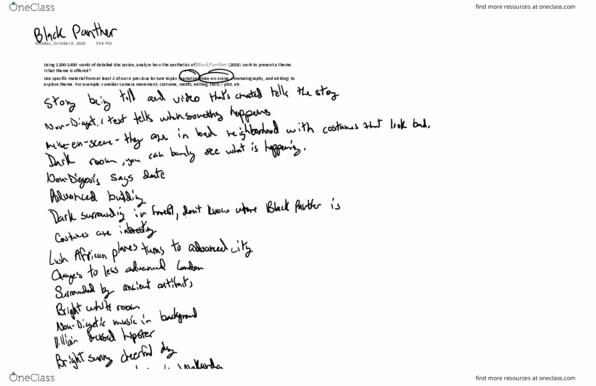 OneClass
find more resources at oneclass.com
Black Panther
October 8, 2018 3:58 PM
Using 1200-1400 words of detailed discussion, analyze how the aesthetics of Black Panther (2018) work to present a theme.
What theme is offered?
Use specific material from at least 2 of our 4 previous lecture topics (narrative, mise-en-scene, cinematography, and editing) to
explore theme. For example: consider camera movement, costume, motifs, editing, story / plot, etc.
Story being told and video that's created tells the story
Non-Diegetic text tells when something happens
mise-en-scene- they are in bad neighborhood with costumes that look bad.
Dark room, you can barely see what is happening.
Non-Diegesis says date
Advanced building
Dark surrounding in forest, don't know where Black Panther is
Costumes are interesting
Lush African planes turns to advanced city
Changes to less advanced London
Surrounded by ancient artifacts
Bright white room
Non-Diegetic music in background
Villain dressed hipster
Bright sunny cheerful day
Wakanda
OneClass
find more resources at oneclass.com